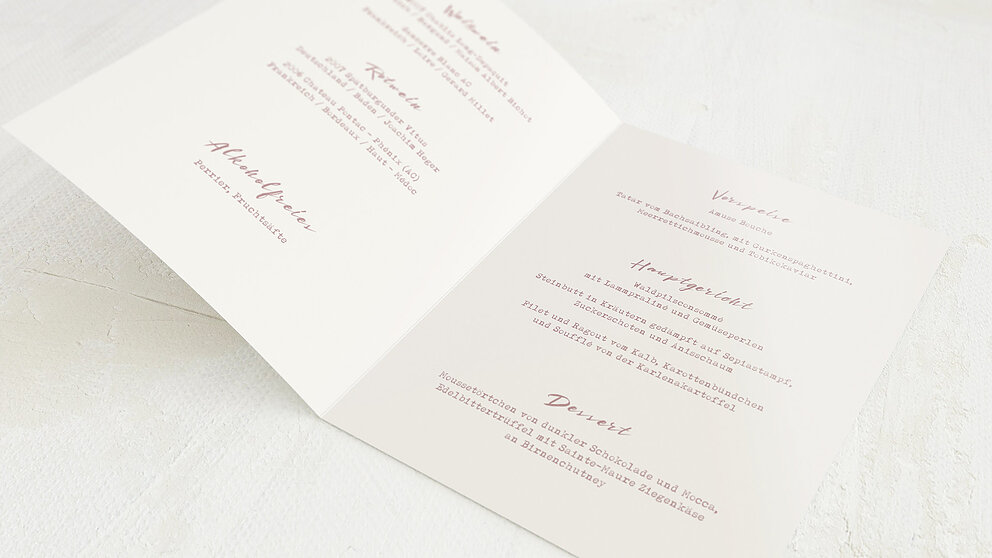 Weißwein
Long-Depaquit
/ Burgund / Maison Albert Bichot
Sancerre Blanc AC
Frankreich / Loire / Gerard Millet
Rotwein
2007 Spätburgunder Vitus
Deutschland / Baden / Joachim Heger
2006 Chateau Pontac - Phenix (AC)
Frankreich / Bordeaux / Haut - Médoc
Alkoholfreies
Perrier, Fruchtsäfte
Vorspeise
Amuse Bouche
Tatar vom Bachsaibling, mit Gurkenspaghettini,
Meerrettichmousse und Tobikokaviar
Hauptgericht
Waldpilsconsommé
mit Lammpraliné und Gemüseperlen
Steinbutt in Kräutern gedämpft auf Sepiastampf,
Zuckerschoten und Anisschaum
Filet und Ragout vom Kalb, Karottenbündchen
und Soufflé von der Karlenakartoffel
Dessert
Moussetörtchen von dunkler Schokolade und Mocca,
Edelbittertrüffel mit Sainte-Maure Ziegenkäse
an Birnenchutney